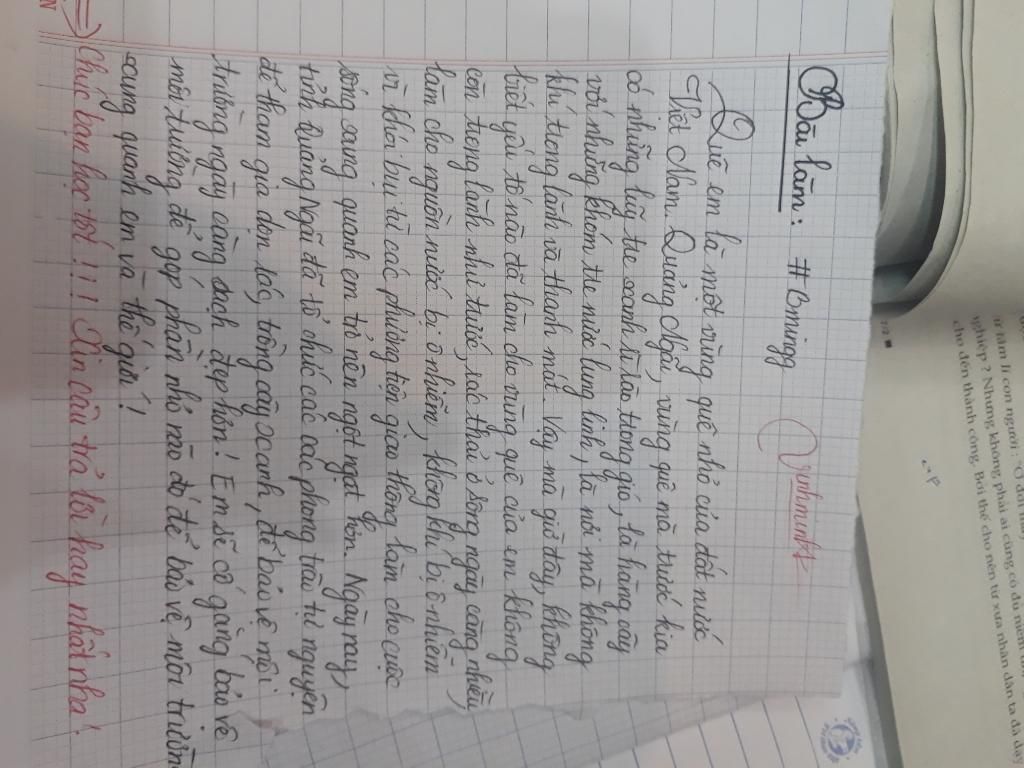 Bài làm: #Bminigg
Quynhminhh
Quê em là một vùng quê nhỏ của đất nước
Việt Nam. Quảng Ngãi, vùng quê mà trước kia
có những lũy tre xanh rì rào trong gió, là hàng cây
với những khóm tre nứa lung linh, là nơi mà không
khí trong lành và thanh mát. Vậy mà giờ đây, không
biết yếu tố nào đã làm cho vùng quê của em không
còn trong lành như trước, rác thải ở sông ngày càng nhiều,
làm cho nguồn nước bị ô nhiễm, không khí bị ô nhiễm
vì khói bụi từ các phương tiện giao thông làm cho cuộc
sống xung quanh em trở nên ngột ngạt hơn. Ngày nay,
tỉnh Quảng Ngãi đã tổ chức các các phong trào tự nguyện
để tham gia dọn rác, trồng cây xanh, để bảo vệ môi
trường ngày càng sạch đẹp hơn! Em sẽ cố gắng bảo vệ
môi trường để góp phần nhỏ nào đó để bảo vệ môi trường
xung quanh em và thế giới!
=> Chúc bạn học tốt!!! Xin câu trả lời hay nhất nha!
con người:
nghiệp? Nhưng không phải ai cũng có đủ niềm
cho đến thành công. Bởi thế cho nên từ xưa nhân dân ta đã dạy